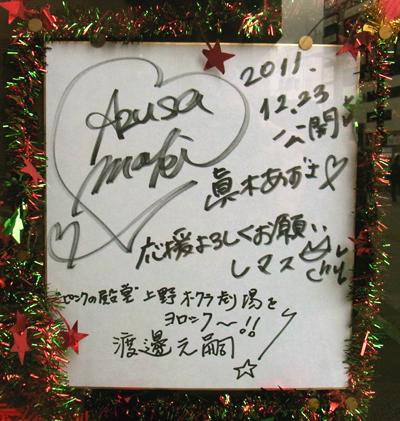 Azusa
Maki
2011.
12.23
公開
眞木あずさ
応援よろしくお願い
します
ピンクの殿堂 上野オークラ劇場を
ヨロシク〜!!
渡邊元嗣